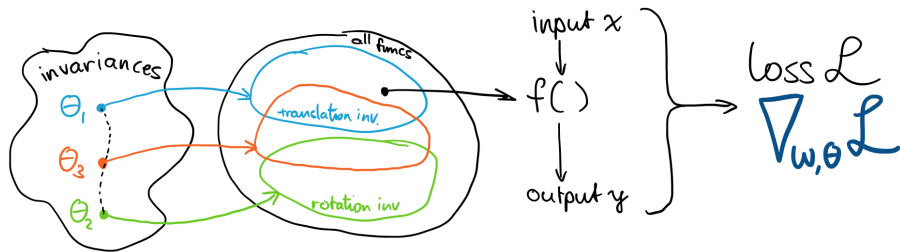 invariances
θ₁
θ₃
θ₂
all funcs
translation inv.
rotation inv
input x
f( )
output y
loss ℒ
∇w,θ ℒ